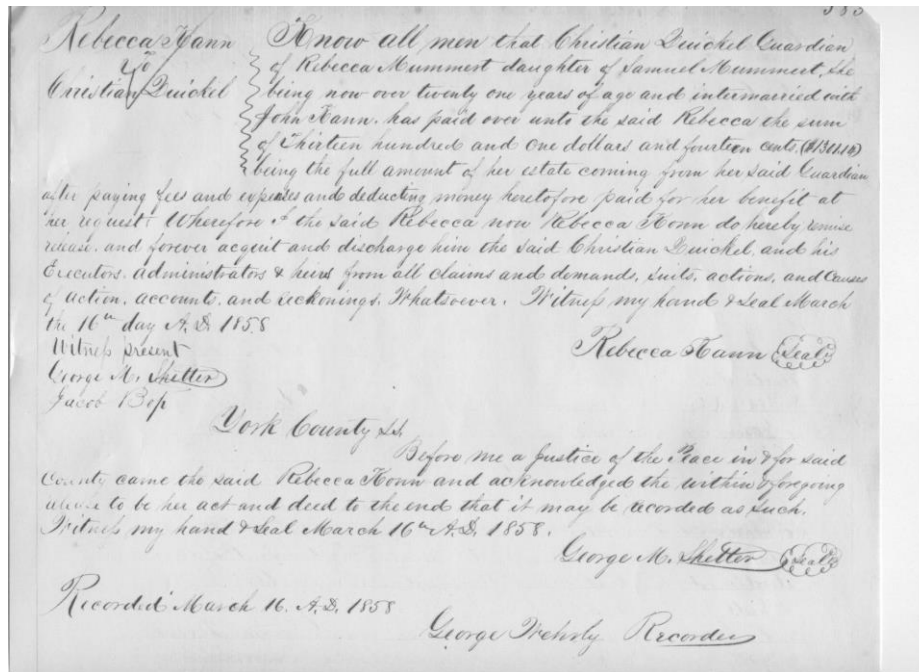 383
Rebecca Hann
To
Christian Quickel
Know all men that Christian Quickel Guardian
of Rebecca Mummert daughter of Samuel Mummert, she
being now over twenty one years of age and intermarried with
John Hann. has paid over unto the said Rebecca the sum
of Thirteen hundred and one dollars and fourteen cents. ($1301.14)
being the full amount of her estate coming from her said Guardian
after paying fees and expenses and deducting money heretofore paid for her benefit at
her request. Wherefore I the said Rebecca now Rebecca Hann do hereby remise
release. and forever acquit and discharge him the said Christian Quickel, and his
Executors. administrators & heirs from all claims and demands, suits, actions, and Causes
of action, accounts, and reckonings, Whatsoever. Witness my hand & Seal March
the 16th day A.D. 1858
Witness present
Rebecca Hann Seal
George M. Shetter
Jacob Bop
York County SS.
Before me a Justice of the Peace in & for said
County came the said Rebecca Hann and acknowledged the within & foregoing
release to be her act and deed to the end that it may be recorded as such.
Witness my hand & Seal March 16th A.D. 1858.
George M. Shetter Seal
Recorded March 16. A.D. 1858
George Wehrly Recorder